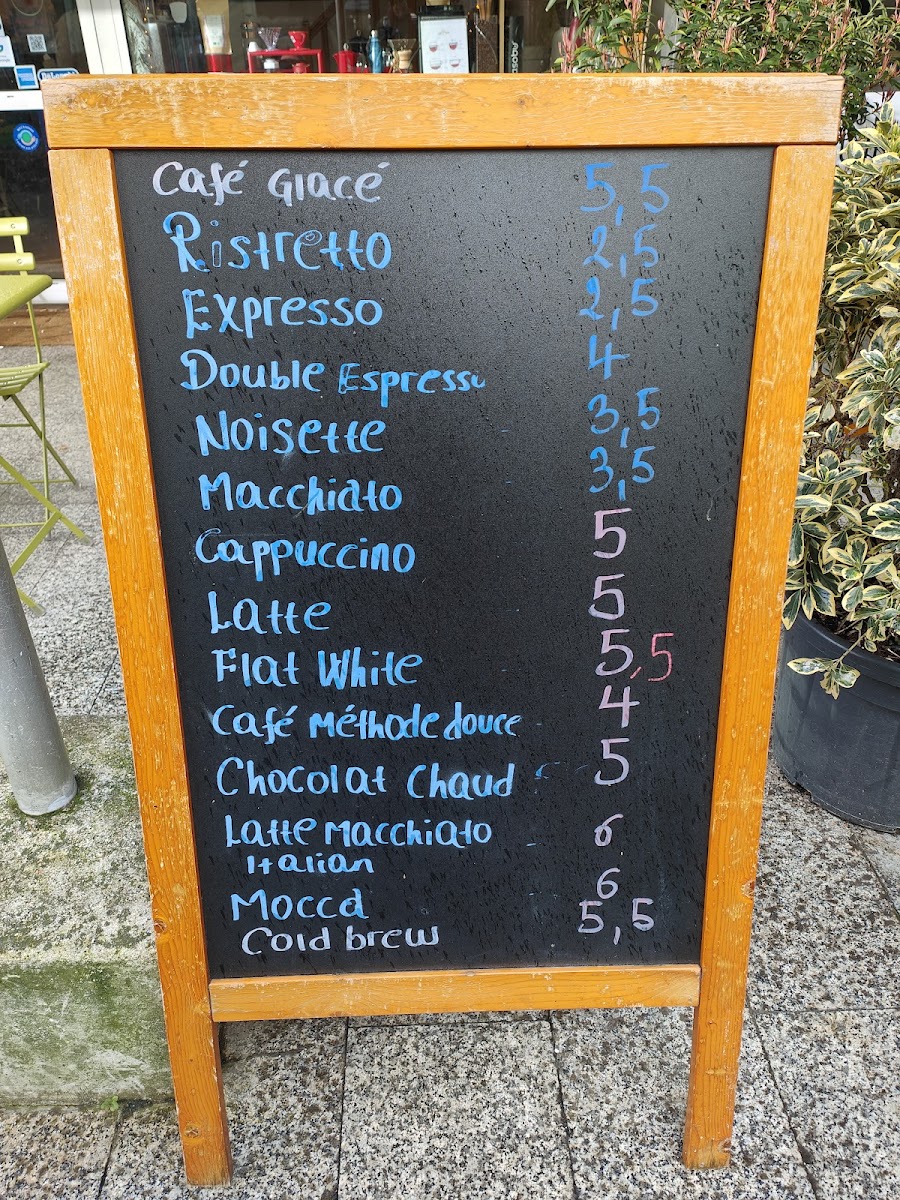 Café Glacé 5,5
Ristretto 2,5
Expresso 2,5
Double Espresso 4
Noisette 3,5
Macchiato 3,5
Cappuccino 5
Latte 5
Flat White 5,5
Café Méthode douce 4
Chocolat Chaud 5
Latte Macchiato 6
Italian
Mocca 6
Cold brew 5,5